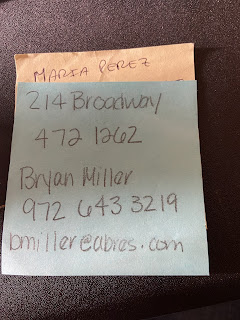 MARIA PEREZ
214 Broadway
472 1262
Bryan Miller
972 643 3219
bmiller@abres.com